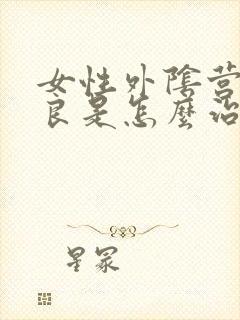 女性外陰营
良是怎麼治
星冢